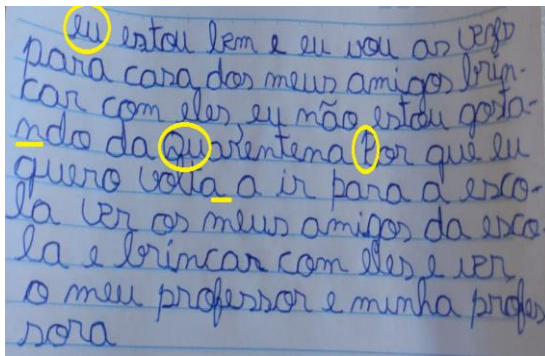 eu estou bem e eu vou as vezes
para casa dos meus amigos brin-
car com eles eu não estou gosta-
ndo da Quarentena Por quê eu
quero volta a ir para a esco-
la ver os meus amigos da esco-
la e brincar com eles e ver
o meu professor e minha profes
sora